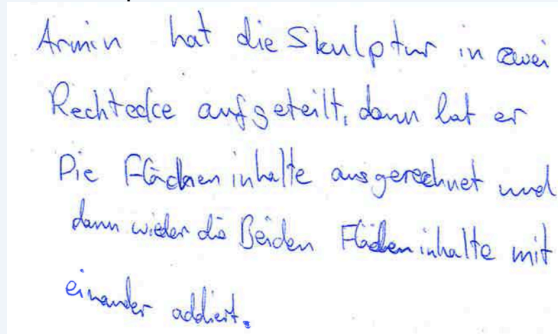 Armin hat die Skulptur in zwei
Rechtecke aufgeteilt, dann hat er
Die Flächeninhalte ausgerechnet und
dann wieder die Beiden Flächeninhalte mit
einander addiert.